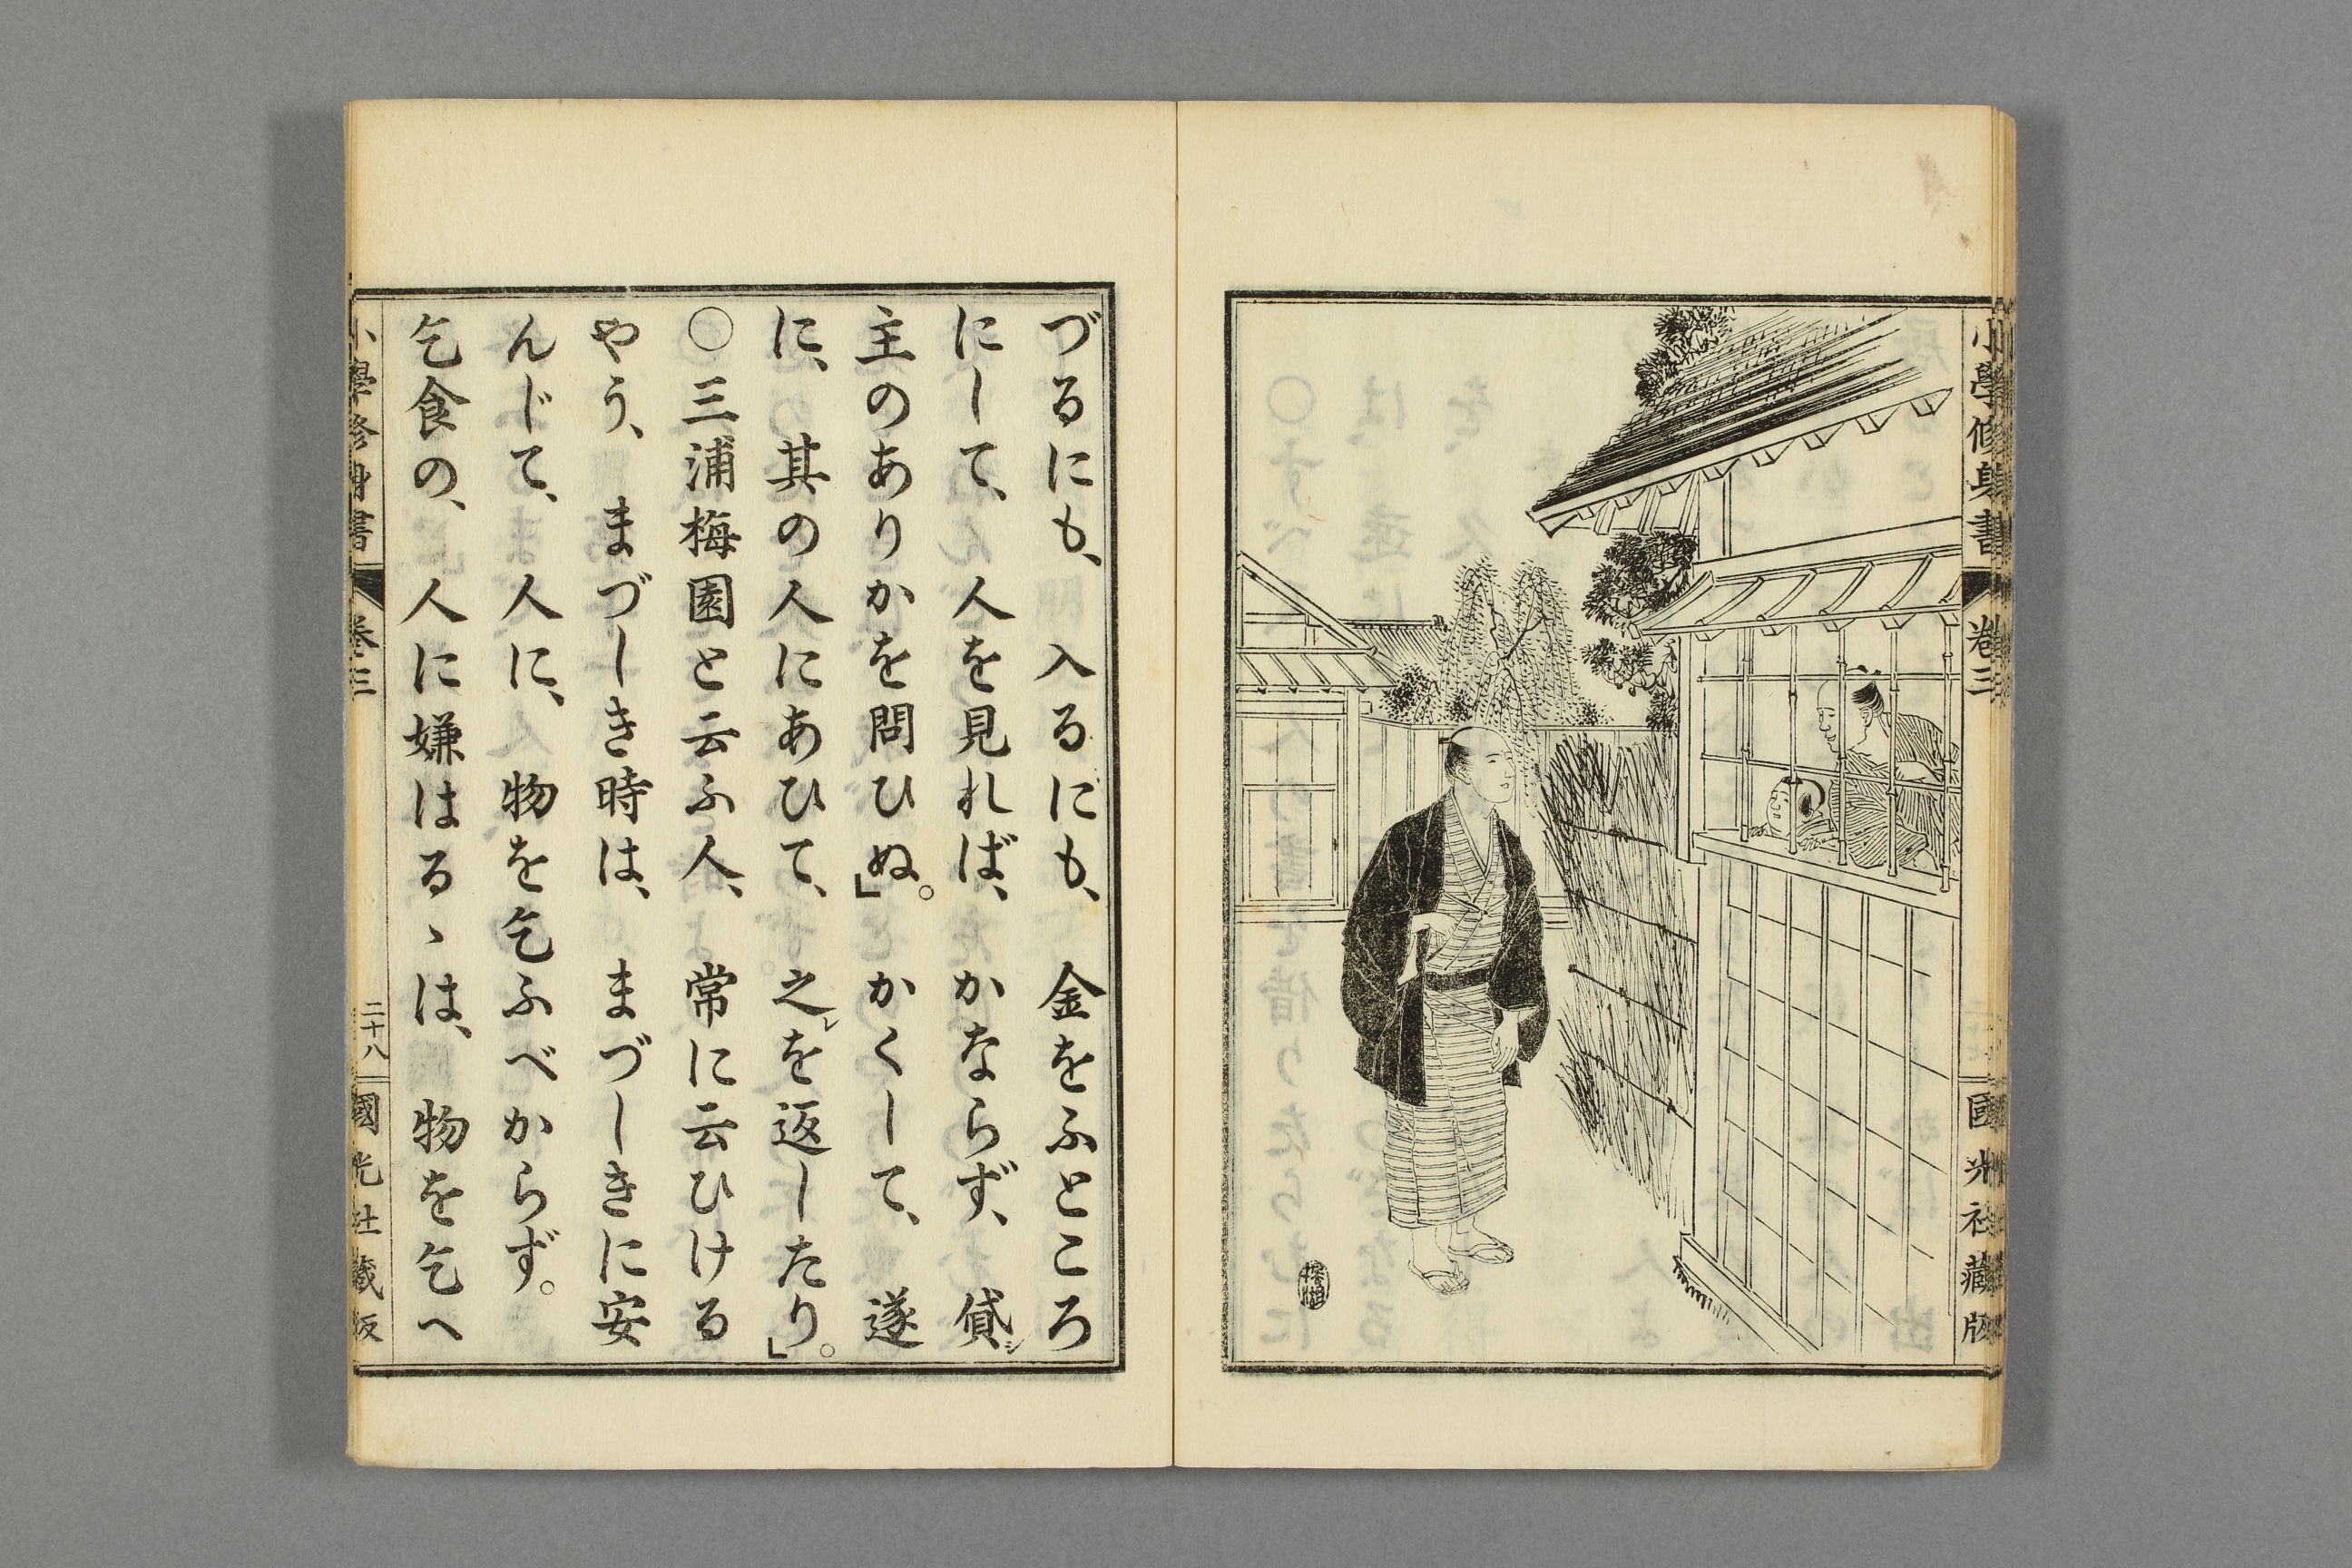 小學修身書 卷三 國光社藏版
づるにも、入るにも、金をふところ
にして、人を見れば、かならず、貸シ
主のありかを問ひぬ。」かくして、遂
に、其の人にあひて、之レを返したり。」
○三浦梅園と云ふ人、常に云ひける
やう、まづしき時は、まづしきに安
んじて、人に、物を乞ふべからず。
乞食の、人に嫌はるゝは、物を乞へ
小學修身書 卷三 二十八 國光社藏版